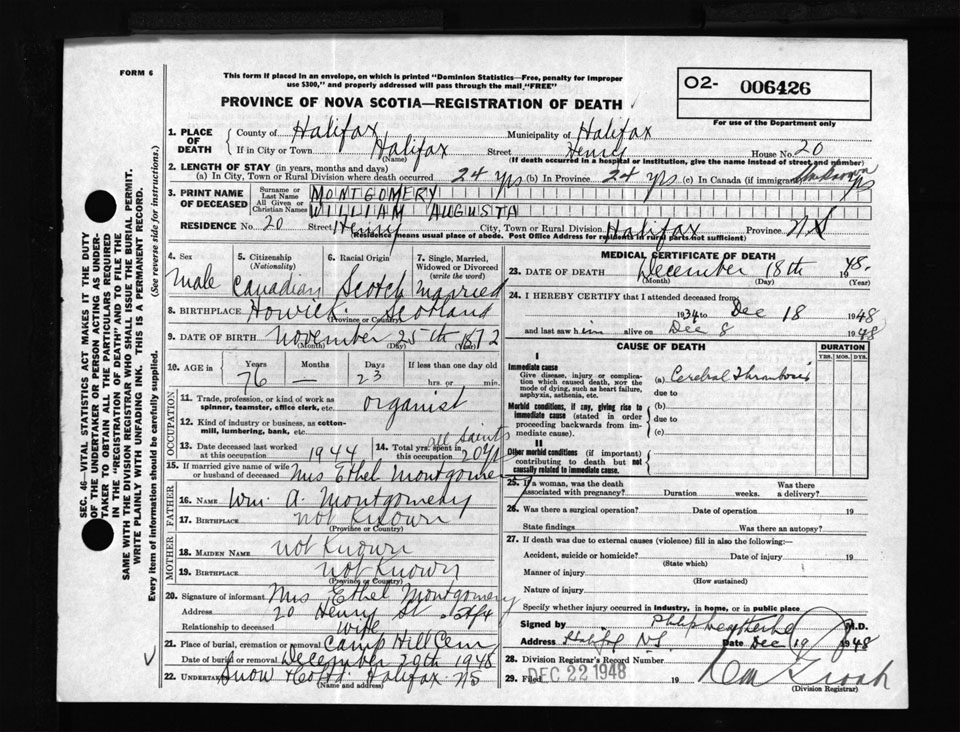 FORM 6
This form if placed in an envelope, on which is printed "Dominion Statistics—Free, penalty for improper
use $300," and properly addressed will pass through the mail "FREE"
PROVINCE OF NOVA SCOTIA—REGISTRATION OF DEATH
O2- 006426
For use of the Department only
1. PLACE OF DEATH { County of Halifax Municipality of Halifax
If in City or Town Halifax Street Henry House No. 20
(Name) (If death occurred in a hospital or institution, give the name instead of street and number)
2. LENGTH OF STAY (in years, months and days)
(a) In City, Town or Rural Division where death occurred 24 yrs (b) In Province 24 yrs (c) In Canada (if immigrant) Unknown yrs
3. PRINT NAME OF DECEASED { Surname or Last Name MONTGOMERY
All Given or Christian Names WILLIAM AUGUSTA
RESIDENCE No. 20 Street Henry City, Town or Rural Division Halifax Province N.S
(Residence means usual place of abode. Post Office Address for residents in rural parts not sufficient)
4. Sex 5. Citizenship (Nationality) 6. Racial Origin 7. Single, Married, Widowed or Divorced (write the word)
Male Canadian Scotch Married
8. BIRTHPLACE Howick Scotland
(Province or Country)
9. DATE OF BIRTH November 25th 1872
(Month) (Day) (Year)
10. AGE in { Years Months Days If less than one day old
76 — 23 hrs. or min.
OCCUPATION
11. Trade, profession, or kind of work as spinner, teamster, office clerk, etc. organist
12. Kind of industry or business, as cotton-mill, lumbering, bank, etc. All Saints
13. Date deceased last worked at this occupation 1944 14. Total yrs. spent in this occupation 20 yrs
15. If married give name of wife or husband of deceased Mrs Ethel Montgomery
FATHER
16. NAME Wm. A. Montgomery
17. BIRTHPLACE not Known
(Province or Country)
MOTHER
18. MAIDEN NAME not Known
19. BIRTHPLACE not Known
(Province or Country)
20. Signature of informant Mrs Ethel Montgomery
Address 20 Henry St Hfx
Relationship to deceased wife
21. Place of burial, cremation or removal Camp Hill Cem
Date of burial or removal December 20th 1948
22. UNDERTAKER Snow & Co Ltd. Halifax NS
(Name and address)
MEDICAL CERTIFICATE OF DEATH
23. DATE OF DEATH December 18th 1948.
(Month) (Day) (Year)
24. I HEREBY CERTIFY that I attended deceased from
1934 to Dec 18 1948
and last saw him alive on Dec 8 1948
CAUSE OF DEATH DURATION
YRS. MOS. DYS.
I
Immediate cause
Give disease, injury or complication which caused death, not the mode of dying, such as heart failure, asphyxia, asthenia, etc.
(a) Cerebral Thrombosis
due to
Morbid conditions, if any, giving rise to immediate cause (stated in order proceeding backwards from immediate cause).
(b)
due to
(c)
II
Other morbid conditions (if important) contributing to death but not causally related to immediate cause.
25. If a woman, was the death associated with pregnancy? Duration weeks. Was there a delivery?
26. Was there a surgical operation? Date of operation 19
State findings Was there an autopsy?
27. If death was due to external causes (violence) fill in also the following:—
Accident, suicide or homicide? Date of injury 19
(State which)
Manner of injury
(How sustained)
Nature of injury
Specify whether injury occurred in industry, in home, or in public place.
Signed by Philip Weatherbe M.D.
Address Halifax N.S Date Dec 19 1948
28. Division Registrar's Record Number
29. Filed DEC 22 1948 19
(Division Registrar)
SEC. 46—VITAL STATISTICS ACT MAKES IT THE DUTY
OF THE UNDERTAKER OR PERSON ACTING AS UNDER-
TAKER TO OBTAIN ALL THE PARTICULARS REQUIRED
IN THE "REGISTRATION OF DEATH" AND TO FILE THE
SAME WITH THE DIVISION REGISTRAR WHO SHALL ISSUE THE BURIAL PERMIT.
WRITE PLAINLY WITH UNFADING INK. THIS IS A PERMANENT RECORD.
Every item of information should be carefully supplied. (See reverse side for instructions.)